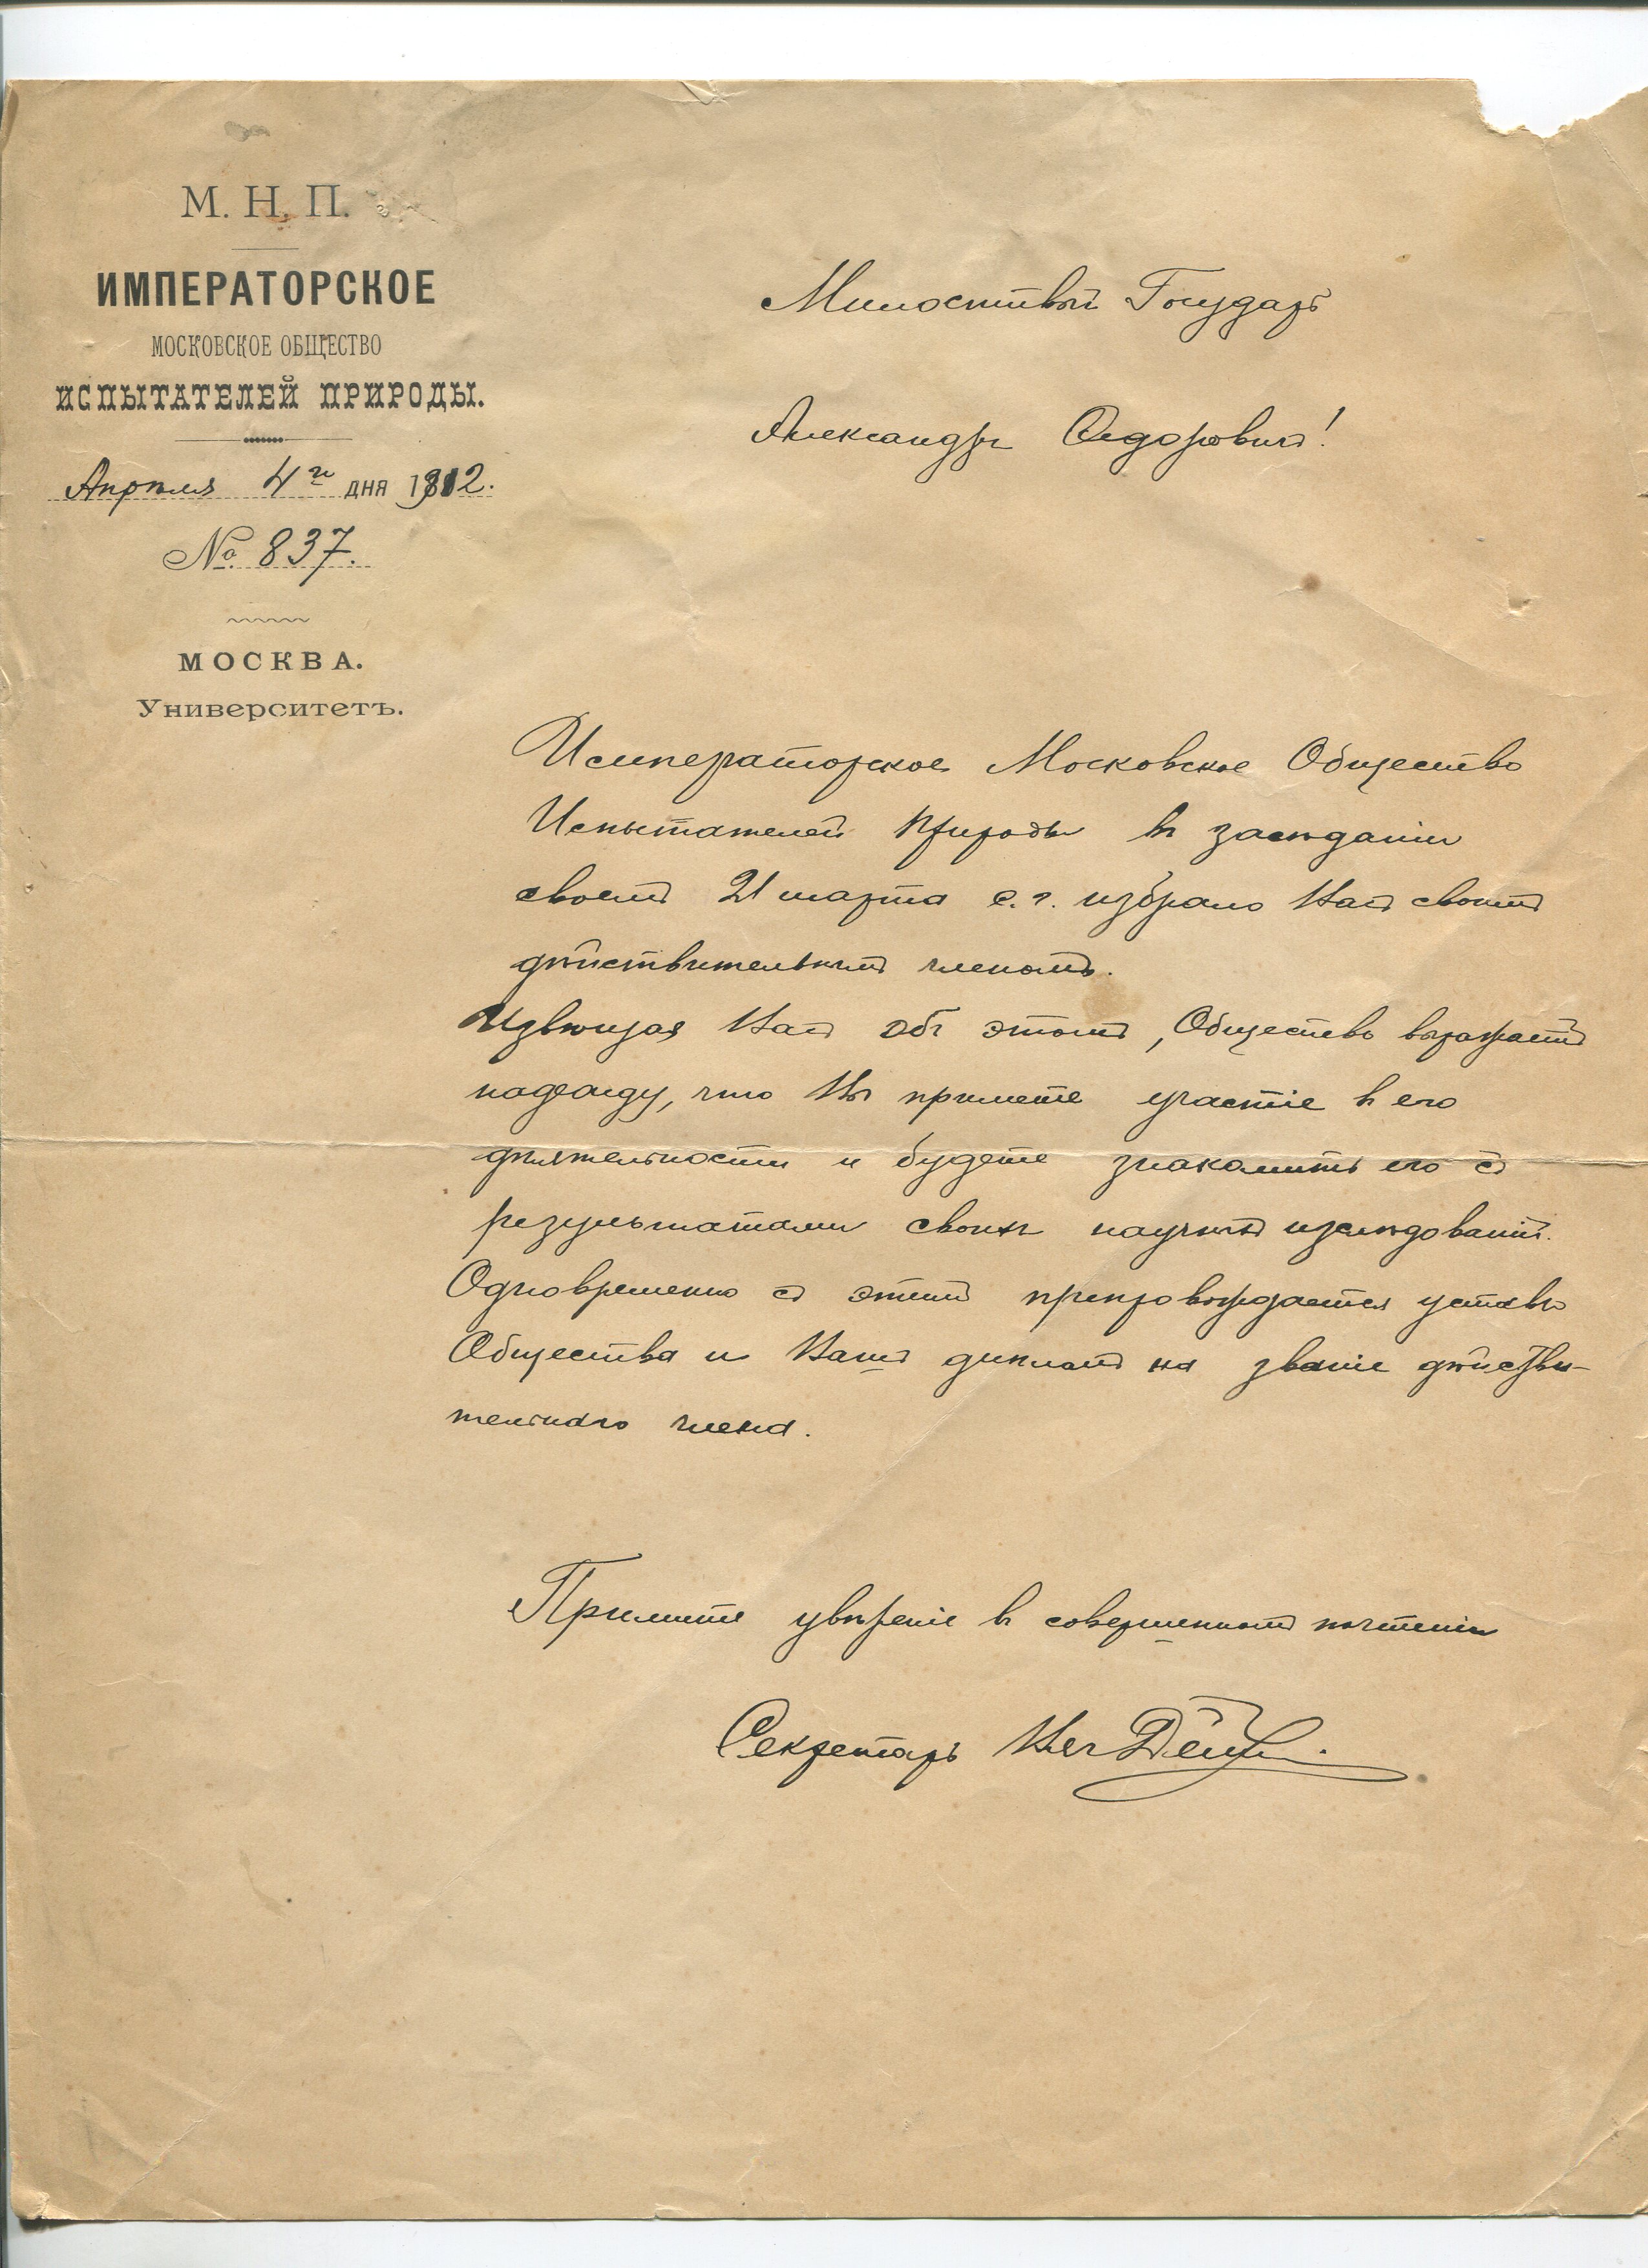 М. Н. П.
ИМПЕРАТОРСКОЕ
МОСКОВСКОЕ ОБЩЕСТВО
ИСПЫТАТЕЛЕЙ ПРИРОДЫ.
Апрѣля 4го дня 1912.
№ 837.
МОСКВА.
Университетъ.
Милостивый Государь
Александръ Ѳедоровичъ!
Императорское Московское Общество
Испытателей Природы въ засѣданіи
своемъ 21 марта с. г. избрало Васъ своимъ
дѣйствительнымъ членомъ.
Извѣщая Васъ объ этомъ, Общество выражаетъ
надежду, что Вы примете участіе въ его
дѣятельности и будете знакомить его съ
результатами своихъ научныхъ изслѣдованій.
Одновременно съ этимъ препровождается уставъ
Общества и Вашъ дипломъ на званіе дѣйстви-
тельнаго члена.
Примите увѣреніе въ совершенномъ почтеніи
Секретарь